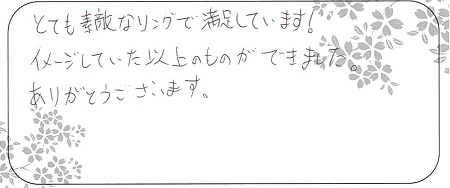 とても素敵なリングで満足しています!
イメージしていた以上のものができました。
ありがとうございます。